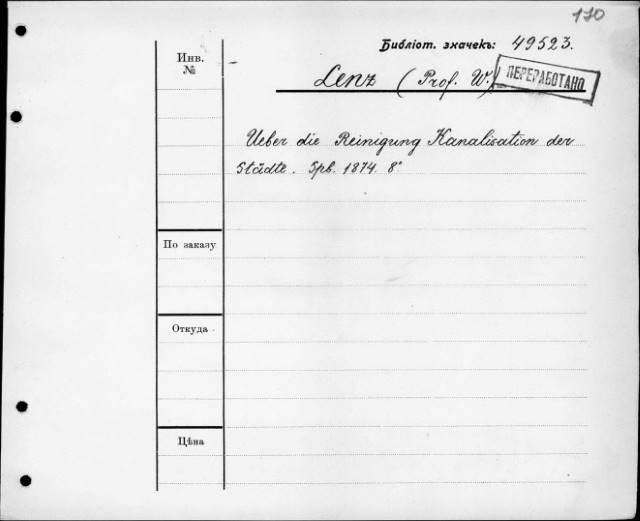 110
Библіот. значекъ: 49523.
Инв.
№
Lenz (Prof. W.)
ПЕРЕРАБОТАНО
Ueber die Reinigung Kanalisation der
Städte. Spb. 1874. 8°
По заказу
Откуда
Цѣна